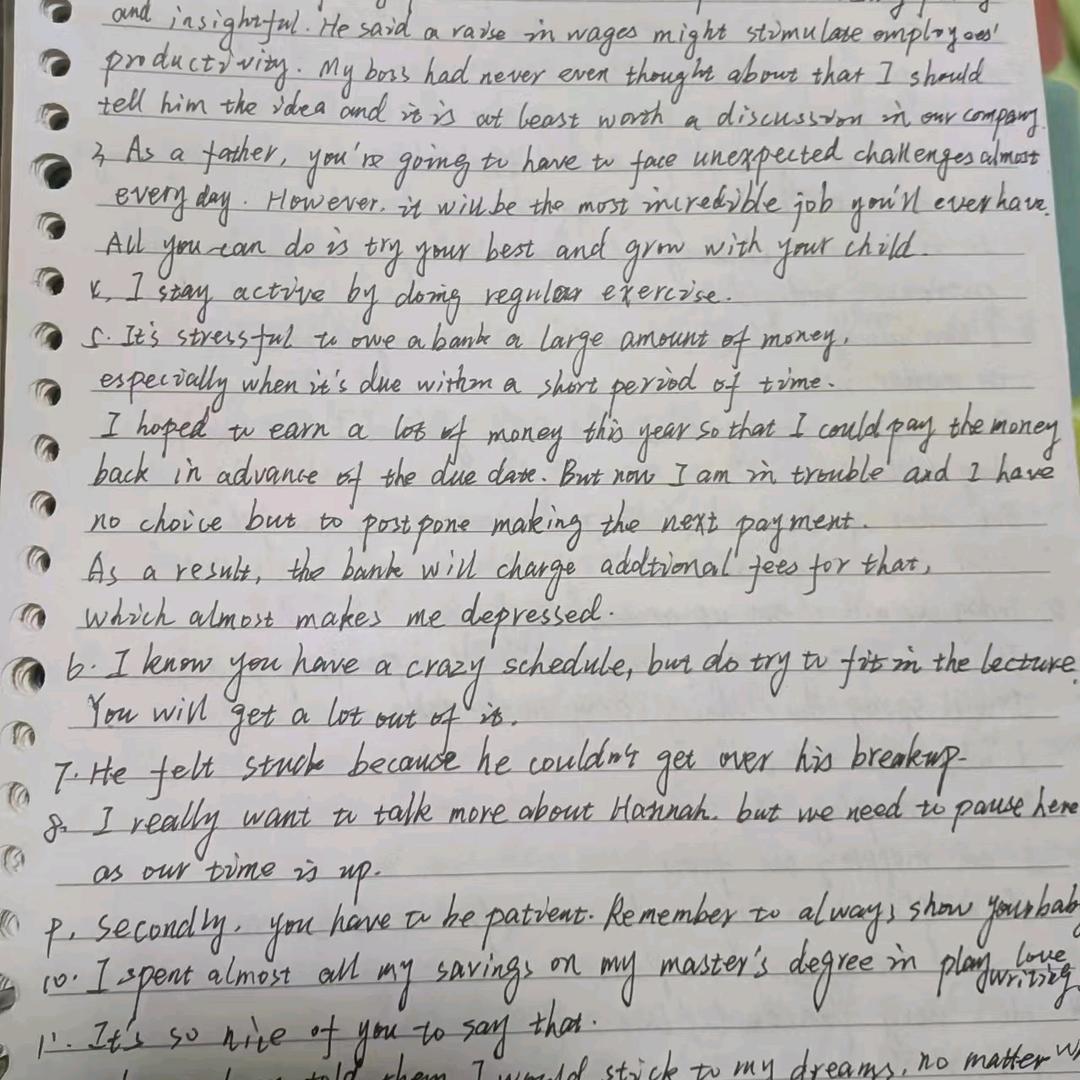 and insightful. He said a raise in wages might stimulate employees'
productivity. My boss had never even thought about that I should
tell him the idea and it is at least worth a discussion in our company.
3, As a father, you're going to have to face unexpected challenges almost
every day. However, it will be the most incredible job you'll ever have.
All you can do is try your best and grow with your child.
4, I stay active by doing regular exercise.
5. It's stressful to owe a bank a large amount of money,
especially when it's due within a short period of time.
I hoped to earn a lot of money this year so that I could pay the money
back in advance of the due date. But now I am in trouble and I have
no choice but to postpone making the next payment.
As a result, the bank will charge addtional fees for that,
which almost makes me depressed.
6. I know you have a crazy schedule, but do try to fit in the lecture.
You will get a lot out of it.
7. He felt stuck because he couldn't get over his breakup.
8. I really want to talk more about Hannah. but we need to pause here
as our time is up.
9, Secondly, you have to be patient. Remember to always show your bab
love
10. I spent almost all my savings on my master's degree in play writing
11. It's so nice of you to say that.
told them I would stick to my dreams, no matter